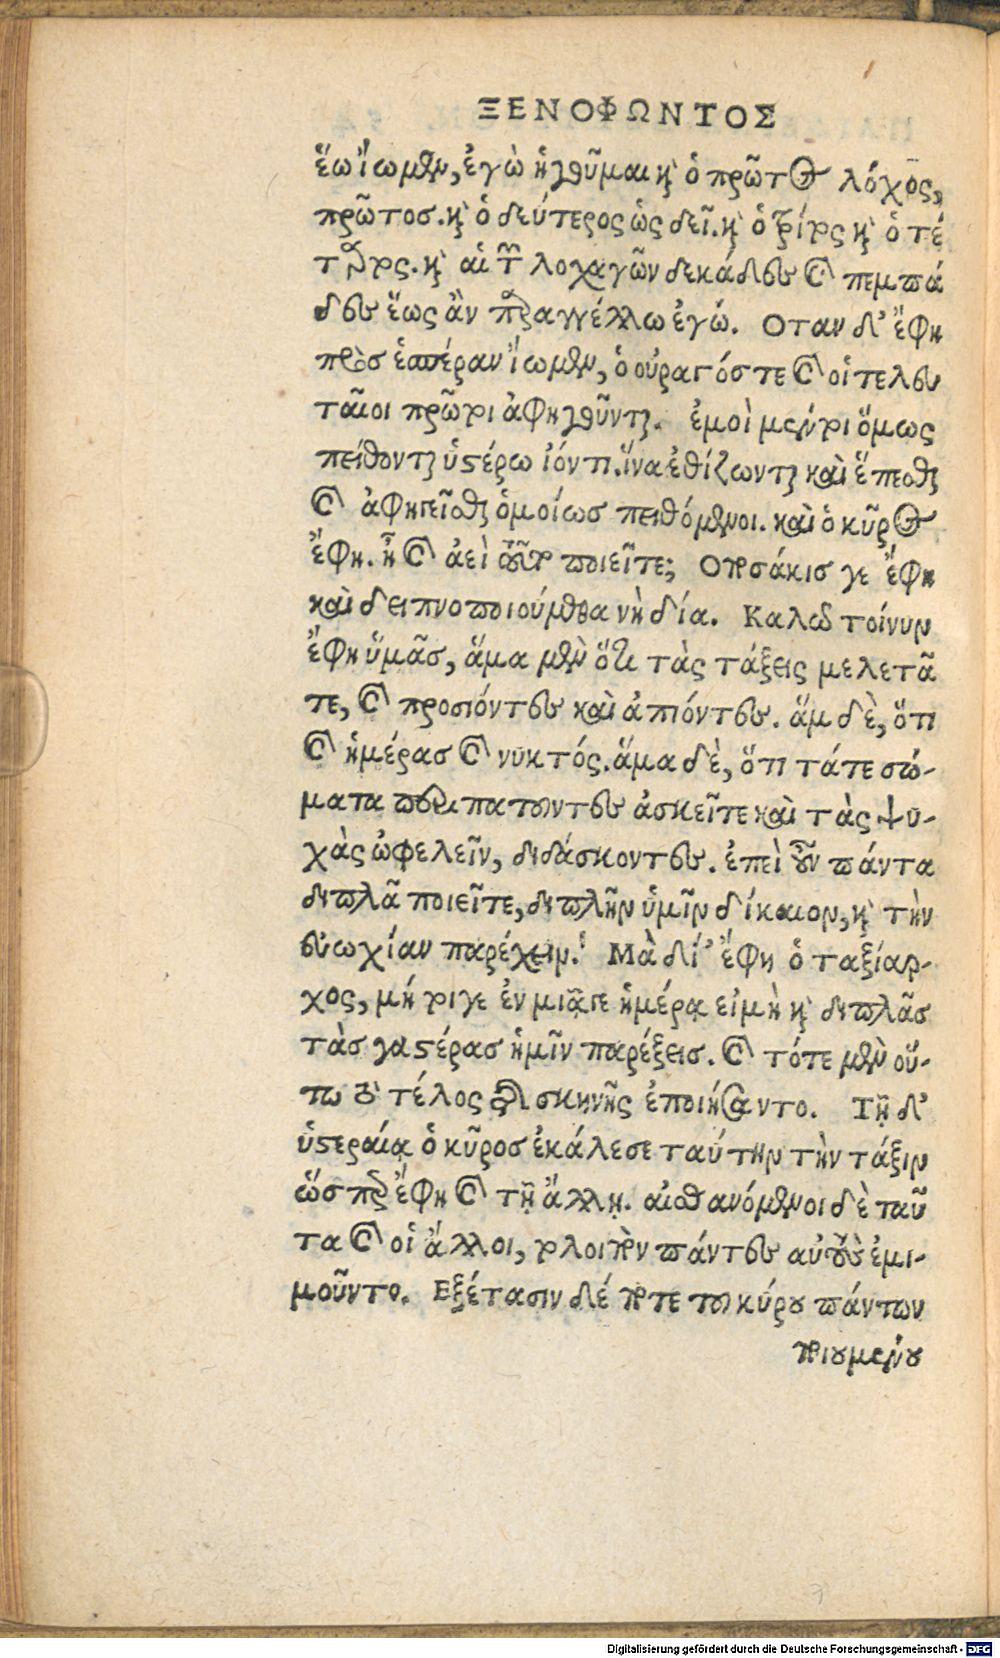 ΞΕΝΟΦΩΝΤΟΣ
ἕω ἴωμεν, ἐγὼ ἡγοῦμαι καὶ ὁ πρῶτος λόχος,
πρῶτοσ. καὶ ὁ δεύτερος ὡς δεῖ. καὶ ὁ τρίτος καὶ ὁ τέ
ταρτος. καὶ αἱ τῶν λοχαγῶν δεκάδες καὶ πεμπά
δες ἕως ἂν παραγγέλλω ἐγώ. Οταν δ' ἔφη
πρὸσ ἑσπέραν ἴωμεν, ὁ οὐραγόστε καὶ οἱ τελευ
ταῖοι πρῶτοι ἀφηγοῦνται. ἐμοὶ μέντοι ὅμως
πείθονται ὑστέρῳ ἰόντι. ἵνα ἐθίζωνται καὶ ἕπεσθαι
καὶ ἀφηγεῖσθαι ὁμοίωσ πειθόμενοι. καὶ ὁ κῦρος
ἔφη. ἦ καὶ ἀεὶ τοῦτο ποιεῖτε; Οποσάκισ γε ἔφη
καὶ δειπνοποιούμεθα νὴ δία. Καλῶ τοίνυν
ἔφη ὑμᾶσ, ἅμα μὲν ὅτι τὰς τάξεις μελετᾶ
τε, καὶ προσιόντες καὶ ἀπιόντες. ἅμ δὲ, ὅτι
καὶ ἡμέρασ καὶ νυκτός. ἅμα δὲ, ὅτι τάτε σώ-
ματα περιπατοῦντες ἀσκεῖτε καὶ τὰς ψυ-
χὰς ὠφελεῖν, διδάσκοντες. ἐπεὶ οὖν πάντα
διπλᾶ ποιεῖτε, διπλῆν ὑμῖν δίκαιον, καὶ τὴν
εὐωχίαν παρέχειν. Μὰ δί' ἔφη ὁ ταξίαρ-
χος, μή τοιγε ἐν μιᾷγε ἡμέρᾳ εἰμὴ καὶ διπλᾶσ
τὰσ γαστέρασ ἡμῖν παρέξεισ. καὶ τότε μὲν οὕ-
τω τὸ τέλος τῆς σκηνῆς ἐποιήσαντο. Τῇ δ'
ὑστεραίᾳ ὁ κῦροσ ἐκάλεσε ταύτην τὴν τάξιν
ὥσπερ ἔφη καὶ τῇ ἄλλῃ. αἰσθανόμενοι δὲ ταῦ
τα καὶ οἱ ἄλλοι, τολοιπὸν πάντες αὐτοὺς ἐμι-
μοῦντο. Εξέτασιν δέ ποτε τοῦ κύρου πάντων
ποιουμένου